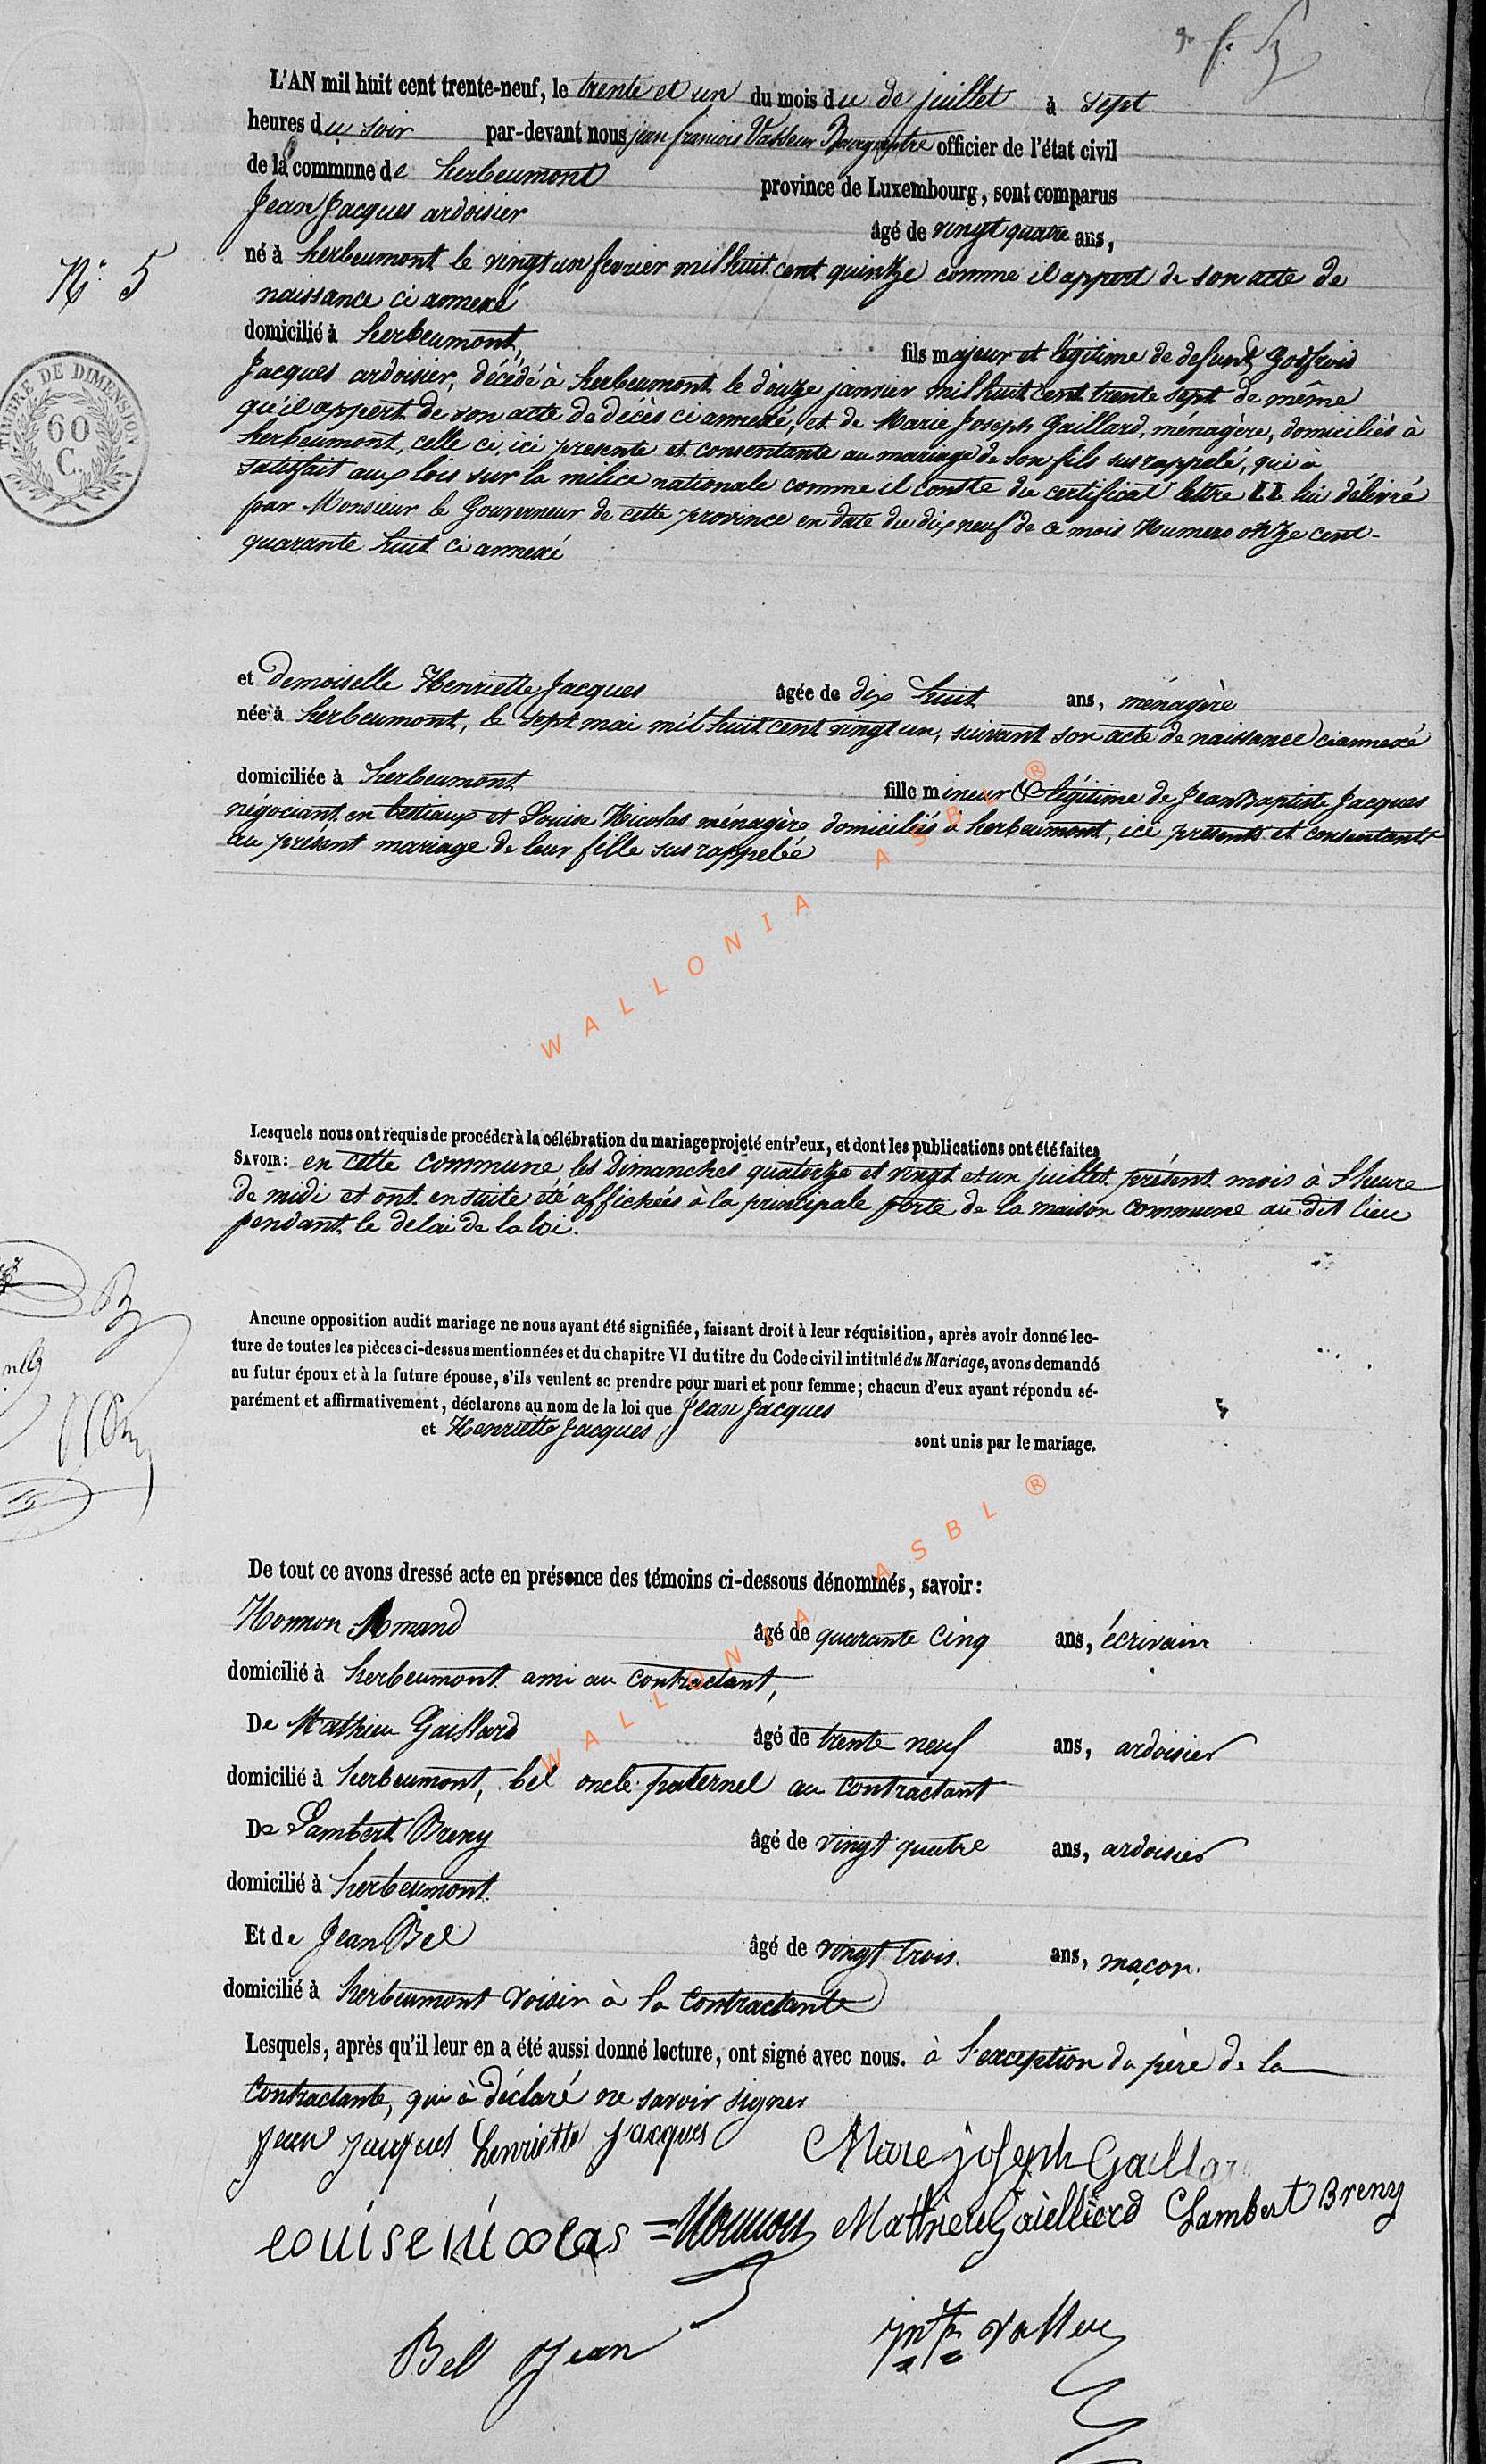 L'AN mil huit cent trente-neuf, le trente et un du mois du de juillet à sept
heures du soir par-devant nous jean francois Vasseur Bourgmestre officier de l'état civil
de la commune de herbeumont province de Luxembourg, sont comparus
Jean Jacques ardoisier âgé de vingt quatre ans,
N° 5
né à herbeumont le vingt un fevrier mil huit cent quintze comme il appert de son acte de
naissance ci annexé
domicilié à herbeumont, fils majeur et légitime de defunt Godfroid
Jacques ardoisier, décédé à herbeumont le douze janvier mil huit cent trente sept de même
qu'il appert de son acte de décès ci annexé, et de Marie Joseph Gaillard, ménagère, domiciliés à
herbeumont, celle ci, ici presente et consentante au mariage de son fils susrappelé, qui à
satisfait aux lois sur la milice nationale comme il conste du certificat lettre LL lui délivré
par Monsieur le Gouverneur de cette province en date du dix neuf de ce mois Numero onze cent-
quarante huit ci annexé
TIMBRE DE DIMENSION
60
C.
et Demoiselle Henriette Jacques âgée de dix huit ans, ménagère
née à herbeumont, le sept mai mil huit cent vingt un, suivant son acte de naissance ci annexé
domiciliée à herbeumont fille mineur & légitime de Jean Baptiste Jacques
négociant en bestiaux et Louise Nicolas ménagère domiciliés à herbeumont, ici presents et consentants
au présent mariage de leur fille susrappelée
WALLONIA ASBL ®
Lesquels nous ont requis de procéder à la célébration du mariage projeté entr'eux, et dont les publications ont été faites
SAVOIR: en cette commune les Dimanches quatorze et vingt et un juillet présent mois à l'heure
de midi et ont ensuite été affichées à la principale porte de la maison commune au dit lieu
pendant le delai de la loi.
Aucune opposition audit mariage ne nous ayant été signifiée, faisant droit à leur réquisition, après avoir donné lec-
ture de toutes les pièces ci-dessus mentionnées et du chapitre VI du titre du Code civil intitulé du Mariage, avons demandé
au futur époux et à la future épouse, s'ils veulent se prendre pour mari et pour femme; chacun d'eux ayant répondu sé-
parément et affirmativement, déclarons au nom de la loi que Jean Jacques
et Henriette Jacques sont unis par le mariage.
WALLONIA ASBL ®
De tout ce avons dressé acte en présence des témoins ci-dessous dénommés, savoir:
Honnon Amand âgé de quarante cinq ans, écrivain
domicilié à herbeumont ami au contractant,
De Mathieu Gaillard âgé de trente neuf ans, ardoisier
domicilié à herbeumont, bel oncle paternel au contractant
De Lambert Breny âgé de vingt quatre ans, ardoisier
domicilié à herbeumont.
Et de Jean Bel âgé de vingt trois. ans, maçon.
domicilié à herbeumont voisin à la contractante
Lesquels, après qu'il leur en a été aussi donné lecture, ont signé avec nous. à l'exception du père de la
contractante, qui à déclaré ne savoir signer
Jean Jacques henriette Jacques Marie joseph Gaillar
louise nicolas Honnon Mathieu Gaielliard Lambert Breny
Bell Jean Vasseur